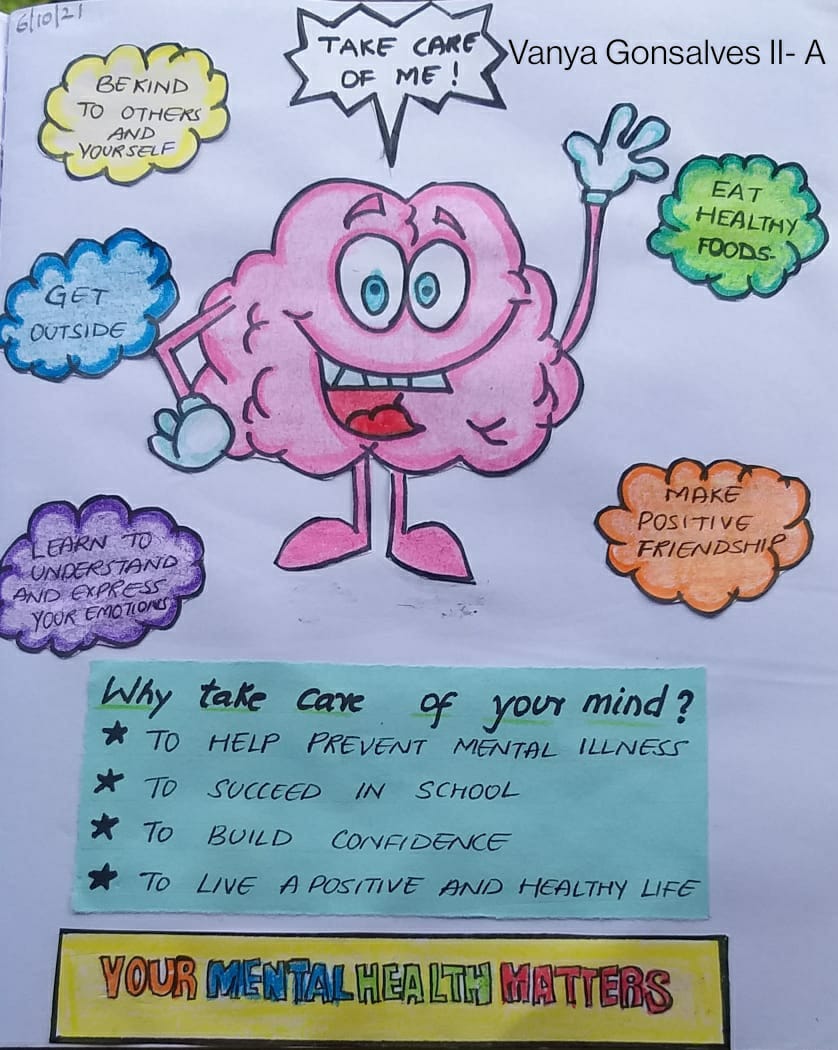 6/10/21
TAKE CARE
OF ME!
Vanya Gonsalves II- A
BE KIND
TO OTHERS
AND
YOURSELF
EAT
HEALTHY
FOODS-
GET
OUTSIDE
MAKE
POSITIVE
FRIENDSHIP
LEARN TO
UNDERSTAND
AND EXPRESS
YOUR EMOTIONS
Why take care of your mind?
★ TO HELP PREVENT MENTAL ILLNESS
★ TO SUCCEED IN SCHOOL
★ TO BUILD CONFIDENCE
★ TO LIVE A POSITIVE AND HEALTHY LIFE
YOUR MENTAL HEALTH MATTERS